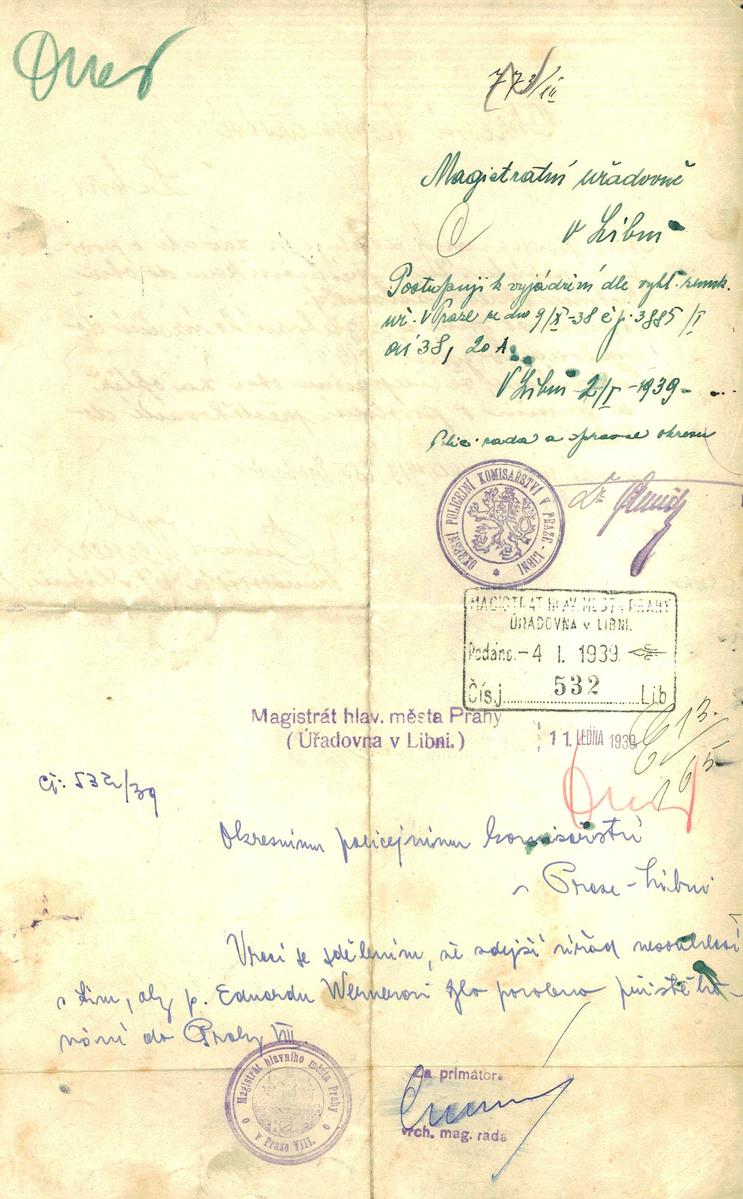 Dnes
773/III
Magistrátní úřadovně
v Libni
Postupuji k vyjádření dle vyhl. zemsk.
úř. v Praze ze dne 9/X-38 čj. 3885/I
ai 38, 20 A.
V Libni 2/I-1939
Polic. rada a správce okresu
Dr.
OKRESNÍ POLICEJNÍ KOMISAŘSTVÍ V PRAZE-LIBNI
MAGISTRÁT HLAV. MĚSTA PRAHY
ÚŘADOVNA v LIBNI.
Podáno -4 I. 1939
Čís.j. 532 Lib
Magistrát hlav. města Prahy
(Úřadovna v Libni.)
11. LEDNA 1939
613.
165
Dnes
čj: 532/39
Okresnímu policejnímu komisařství
v Praze-Libni
Vrací se sdělením, že zdejší úřad nesouhlasí
s tím, aby p. Eduardu Wernerovi bylo povoleno přistěho-
vání do Prahy VIII.
Magistrát hlavního města Prahy
v Praze VIII.
Za primátora
vrch. mag. rada